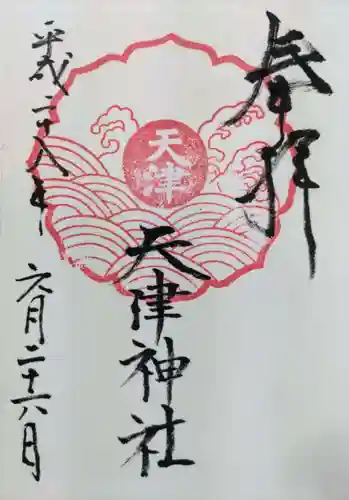 奉拝
天津
天津神社
平成二十八年
六月二十六日